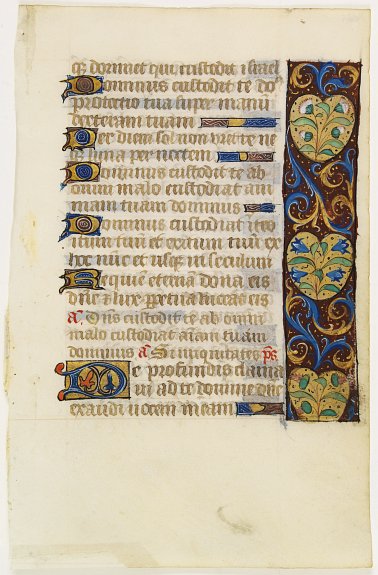 qz dormiet qui custodit israel
Dominus custodit te do
protectio tua super manum
dexteram tuam
Per diem sol non uret te ne
luna per noctem
Dominus custodit te ab
omni malo custodiat ani
mam tuam dominus
Dominus custodiat intro
itum tuum et exitum tuum ex
hoc nunc et usque in seculum
Requiem eternam dona eis
dne & lux perpetua luceat eis
a. Dns custodit te ab omni
malo custodiat animam tuam
dominus a. Si iniquitates ps
De profundis clama
ui ad te domine dne
exaudi uocem meam